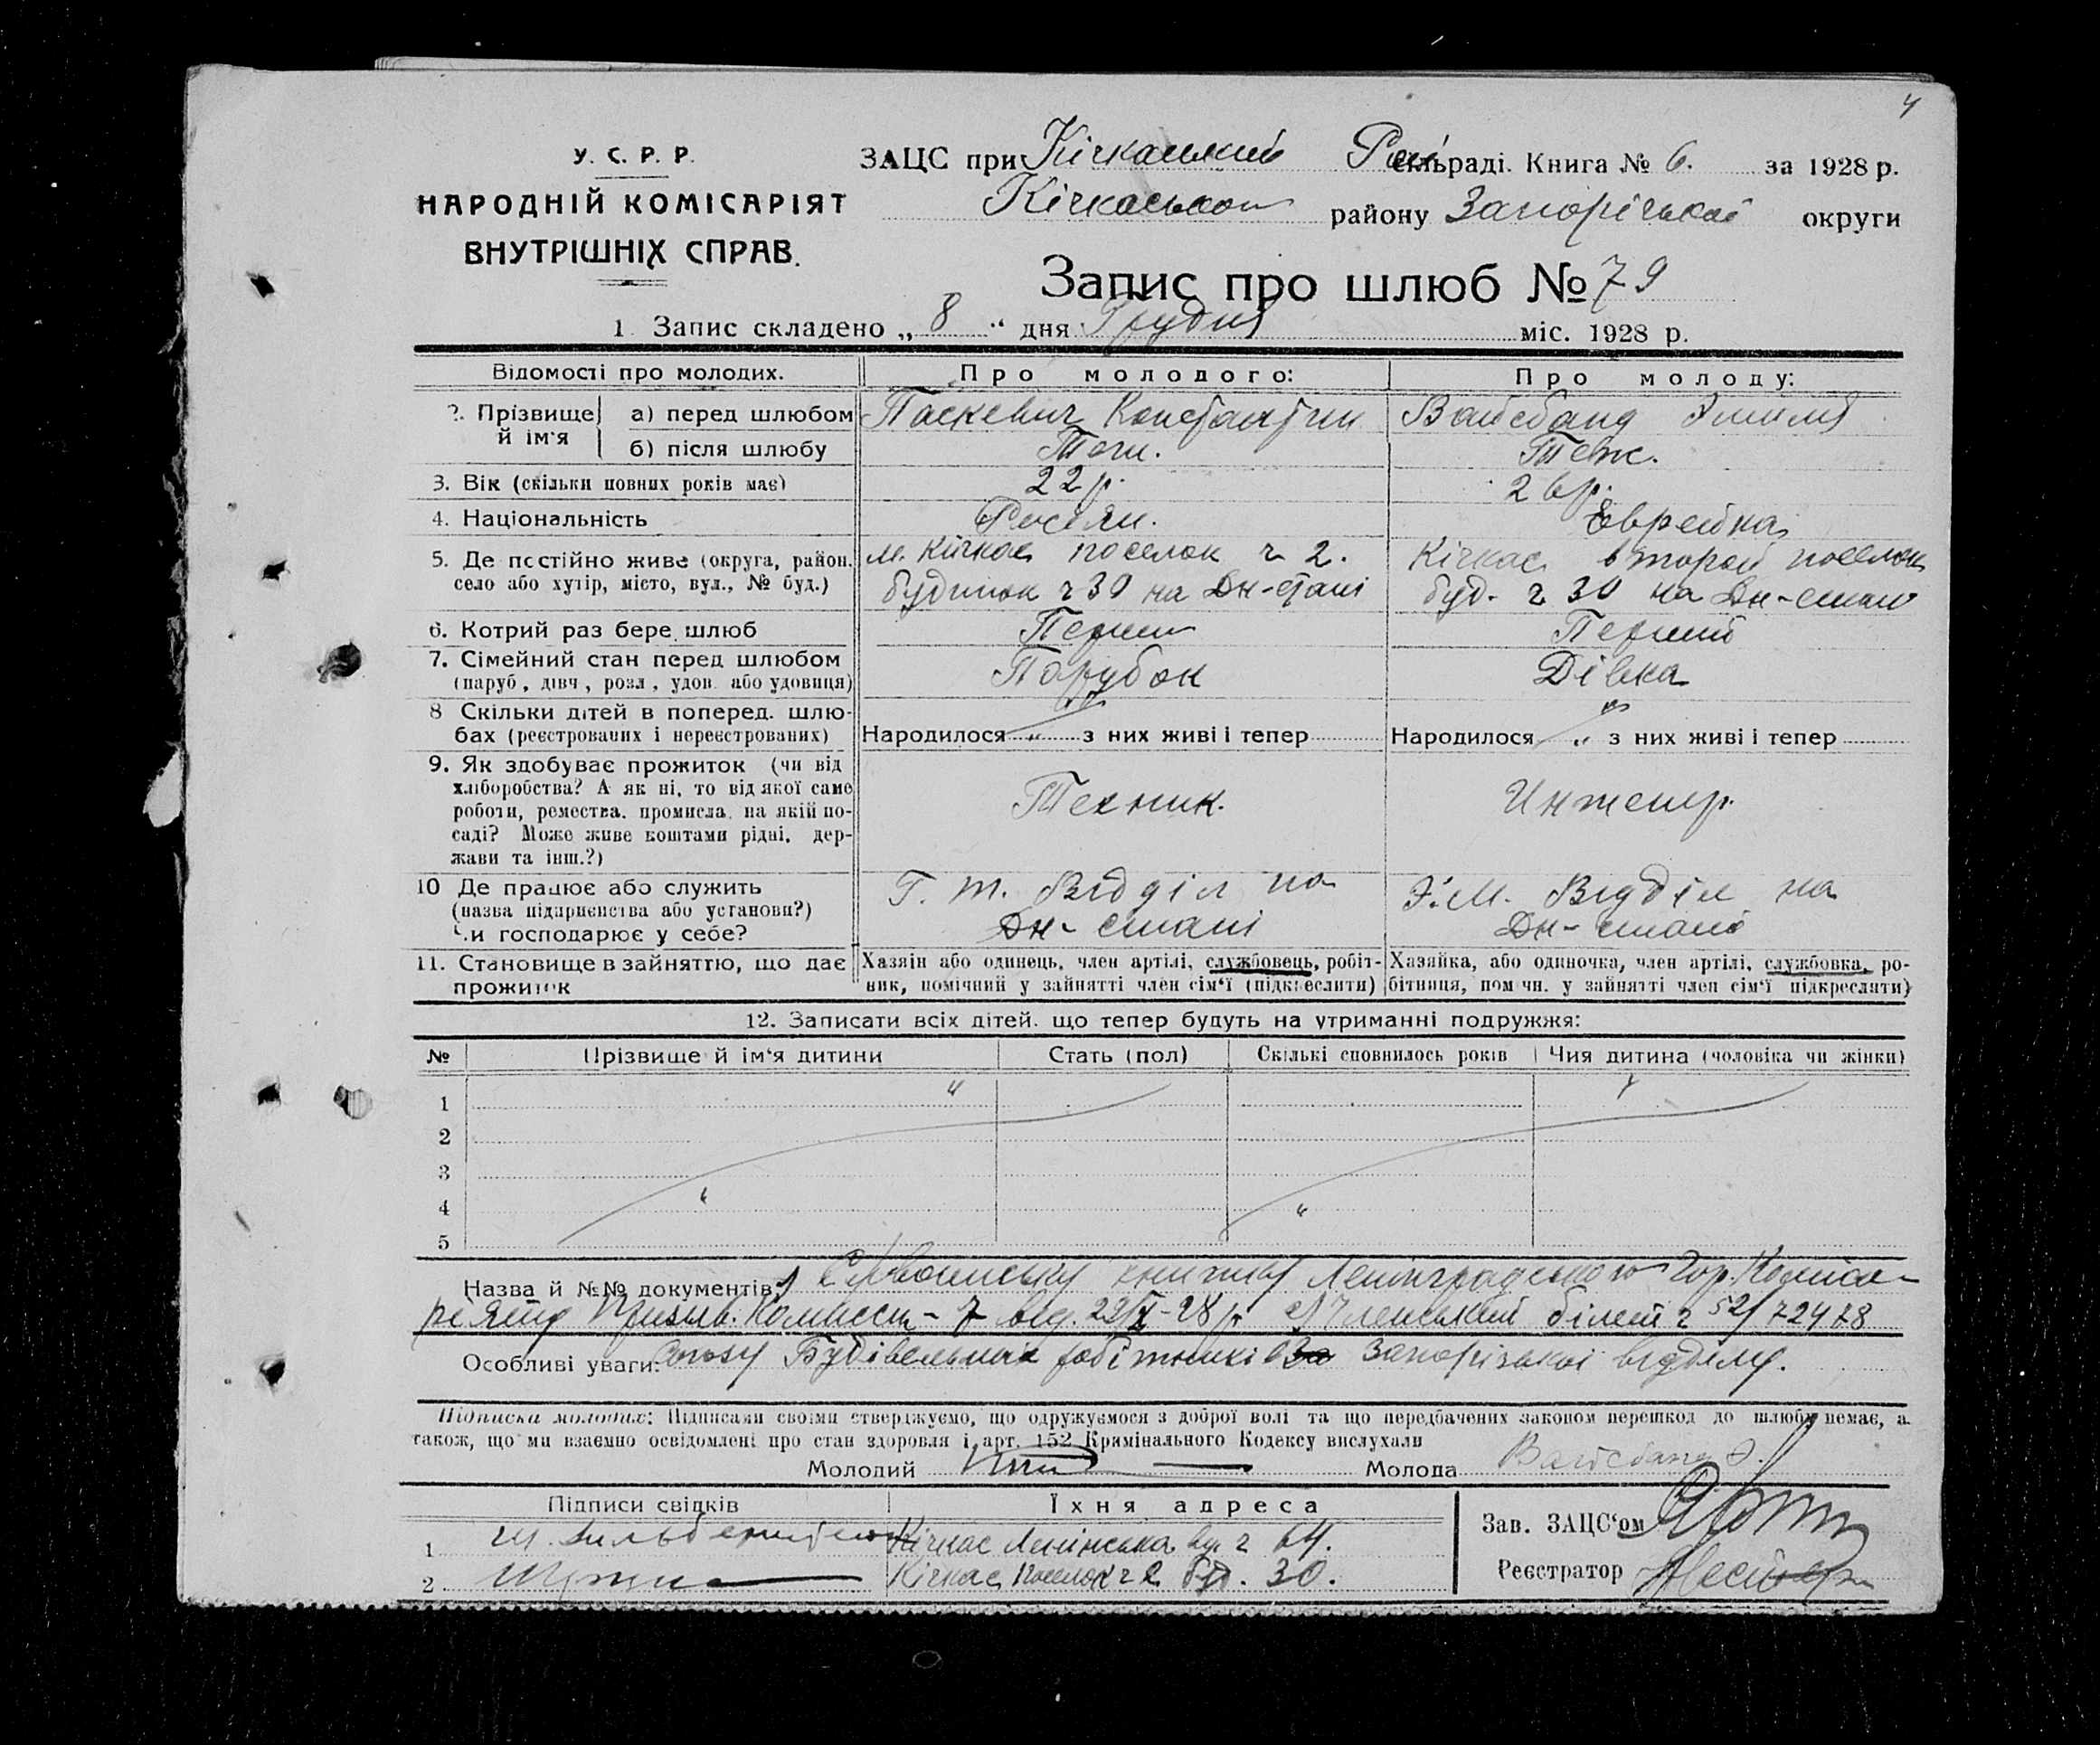 4
У. С. Р. Р.
НАРОДНІЙ КОМІСАРІЯТ
ВНУТРІШНІХ СПРАВ.
ЗАЦС при Кічкаський Рай сільраді. Книга № 6. за 1928 р.
Кічкаського району Запорізької округи
Запис про шлюб № 79
1. Запис складено „ 8 “ дня Грудня міс. 1928 р.
Відомості про молодих. Про молодого: Про молоду:
2. Прізвище й ім'я а) перед шлюбом Паскевич Константин Вайсбанд Эмилия
б) після шлюбу Теж. Теж.
3. Вік (скільки повних років має) 22 р. 26 р.
4. Національність Росіян. Еврейка
5. Де постійно живе (округа, район, м. Кічкас поселок ч 2. Кічкас второй поселок
село або хутір, місто, вул., № буд.) будинок ч 30 на Дн-стані буд. ч 30 на Дн-стані
6. Котрий раз бере шлюб Перший Перший
7. Сімейний стан перед шлюбом Парубок Дівка
(паруб., дівч., розл., удов. або удовиця)
8 Скільки дітей в поперед. шлю-
бах (реєстрованих і нереєстрованих) Народилося „ з них живі і тепер Народилося „ з них живі і тепер
9. Як здобуває прожиток (чи від
хліборобства? А як ні, то від якої саме Техник. Инженер.
роботи, ремества, промисла, на якій по-
саді? Може живе коштами рідні, дер-
жави та інш.?)
10 Де працює або служить Г. т. Відділ на Э.М. Відділ на
(назва підприємства або установи?) Дн-стані Дн-стані
Чи господарює у себе?
11. Становище в зайняттю, що дає Хазяїн або одинець, член артілі, службовець, робіт- Хазяйка, або одиночка, член артілі, службовка, ро-
прожиток ник, помічний у зайнятті член сім'ї (підкреслити) бітниця, помічн. у зайнятті член сім'ї підкреслити)
12. Записати всіх дітей, що тепер будуть на утриманні подружжя:
№ Прізвище й ім'я дитини Стать (пол) Скількі сповнилось років Чия дитина (чоловіка чи жінки)
1
2
3
4
5
Назва й №№ документів: книжку Ленинградського Гор. Коміса-
ріяту Призыв. Комиссии - 7 від. 22/X-28 р Членський білет ч 52/72478
Особливі уваги: Союзу Будівельних робітників Запорізької відділу.
Підписка молодих: Підписами своїми стверджуємо, що одружуємося з доброї волі та що передбачених законом перешкод до шлюбу немає, а
також, що ми взаємно освідомлені про стан здоровля і арт. 152 Кримінального Кодексу вислухали
Молодий Молода Вайсбанд Э.
Підписи свідків Їхня адреса
1 Кічкас Ленінська вул ч 64. Зав. ЗАЦС'ом
2 Кічкас Поселок ч 2 буд. 30. Реєстратор